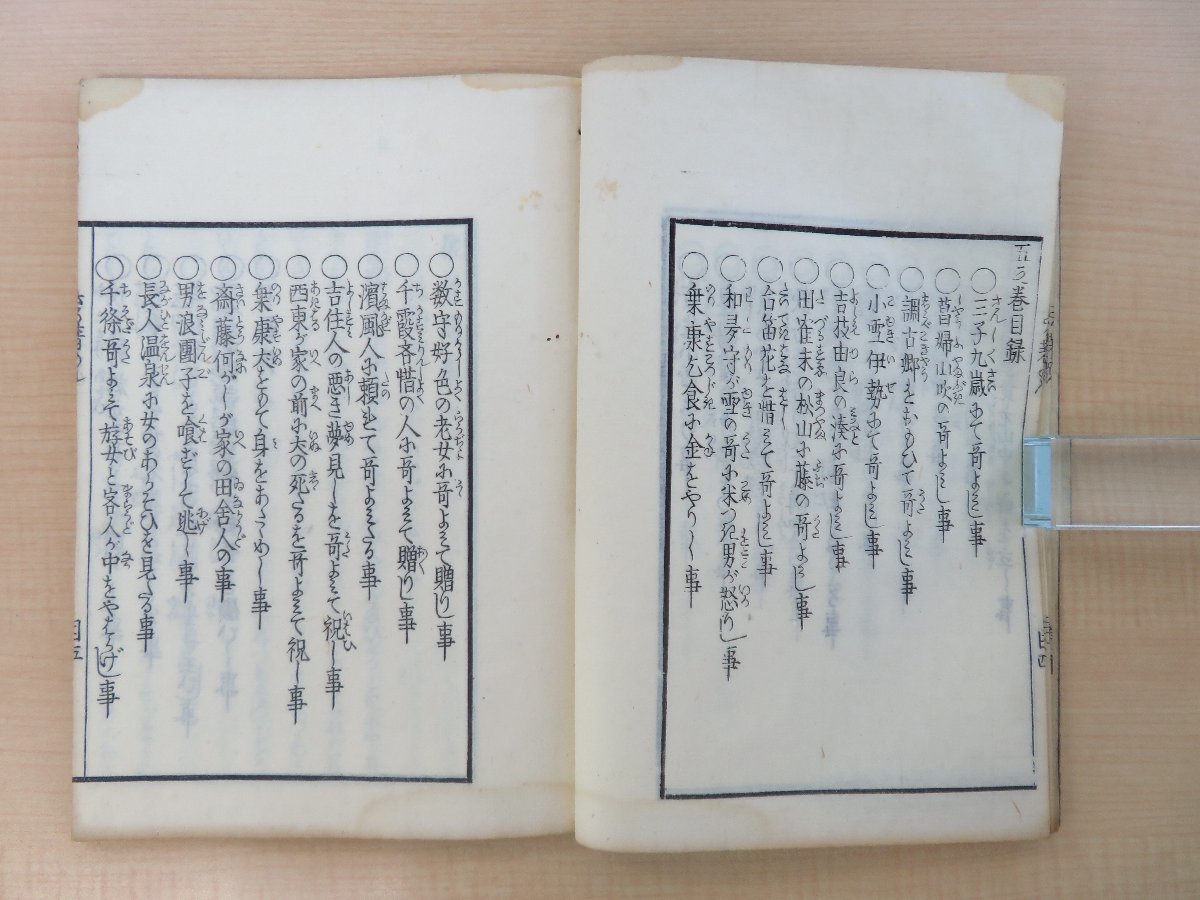 五之巻目録
○三子九歳にて哥よみし事
○菖婦山吹の哥よみし事
○調古郷をおもひて哥よみし事
○小雪伊勢にて哥よみし事
○吉枝由良の湊にて哥よみし事
○田雀末の松山に藤の哥よみし事
○合笛花を惜みて哥よみし事
○和多守が雪の哥に米つき男が怒りし事
○乗康乞食に金をやりし事
○数守好色の老女に哥よみて贈りし事
○千霞吝惜の人に哥よみて贈りし事
○濱風人に頼まれて哥よみたる事
○吉住人の悪き夢見しを哥よみて祝ひし事
○西東が家の前に犬の死たるを哥よみて祝し事
○乗康夫をもて身をあらためし事
○齋藤何がしが家の田舎人の事
○男浪團子を喰ずして迯し事
○長人温泉に女のあらそひを見たる事
○千條哥よみて遊女と客人が中をやはらげし事